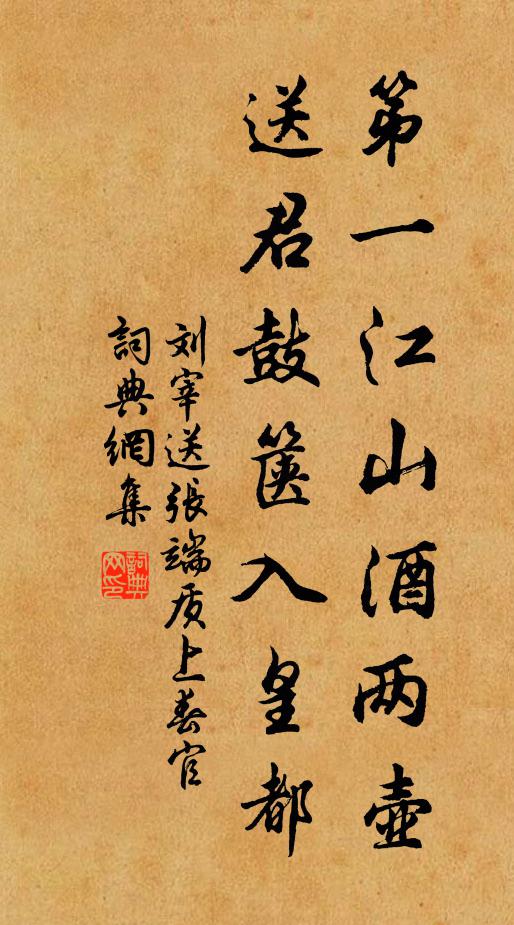 第一江山酒两壶
送君鼓箧入皇都
刘宰送张端质上春官
词典網集
詞典
网印